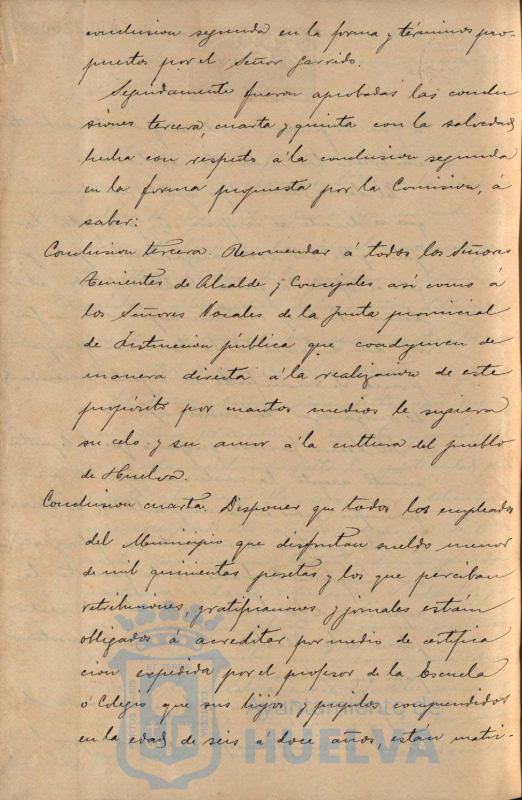 conclusion segunda en la forma y términos pro-
puestos por el Señor Garrido.
Segundamente fueron aprobadas las conclu
siones tercera, cuarta y quinta con la salvedad
hecha con respecto á la conclusion segunda
en la forma propuesta por la Comision, á
saber:
Conclusion tercera. Recomendar á todos los Señores
Tenientes de Alcalde y Concejales así como á
los Señores Vocales de la Junta provincial
de Instruccion pública que coadyuven de
manera directa á la realizacion de este
propósito por cuantos medios le sugiera
su celo y su amor á la cultura del pueblo
de Huelva.
Conclusion cuarta. Disponer que todos los empleados
del Municipio que disfrutan sueldo menor
de mil quinientas pesetas y los que perciban
retribuciones, gratificaciones y jornales están
obligados á acreditar por medio de certifica
cion expedida por el profesor de la Escuela
ó Colegio que sus hijos y pupilos comprendidos
en la edad de seis á doce años, están matri-
Ayuntamiento de
HUELVA